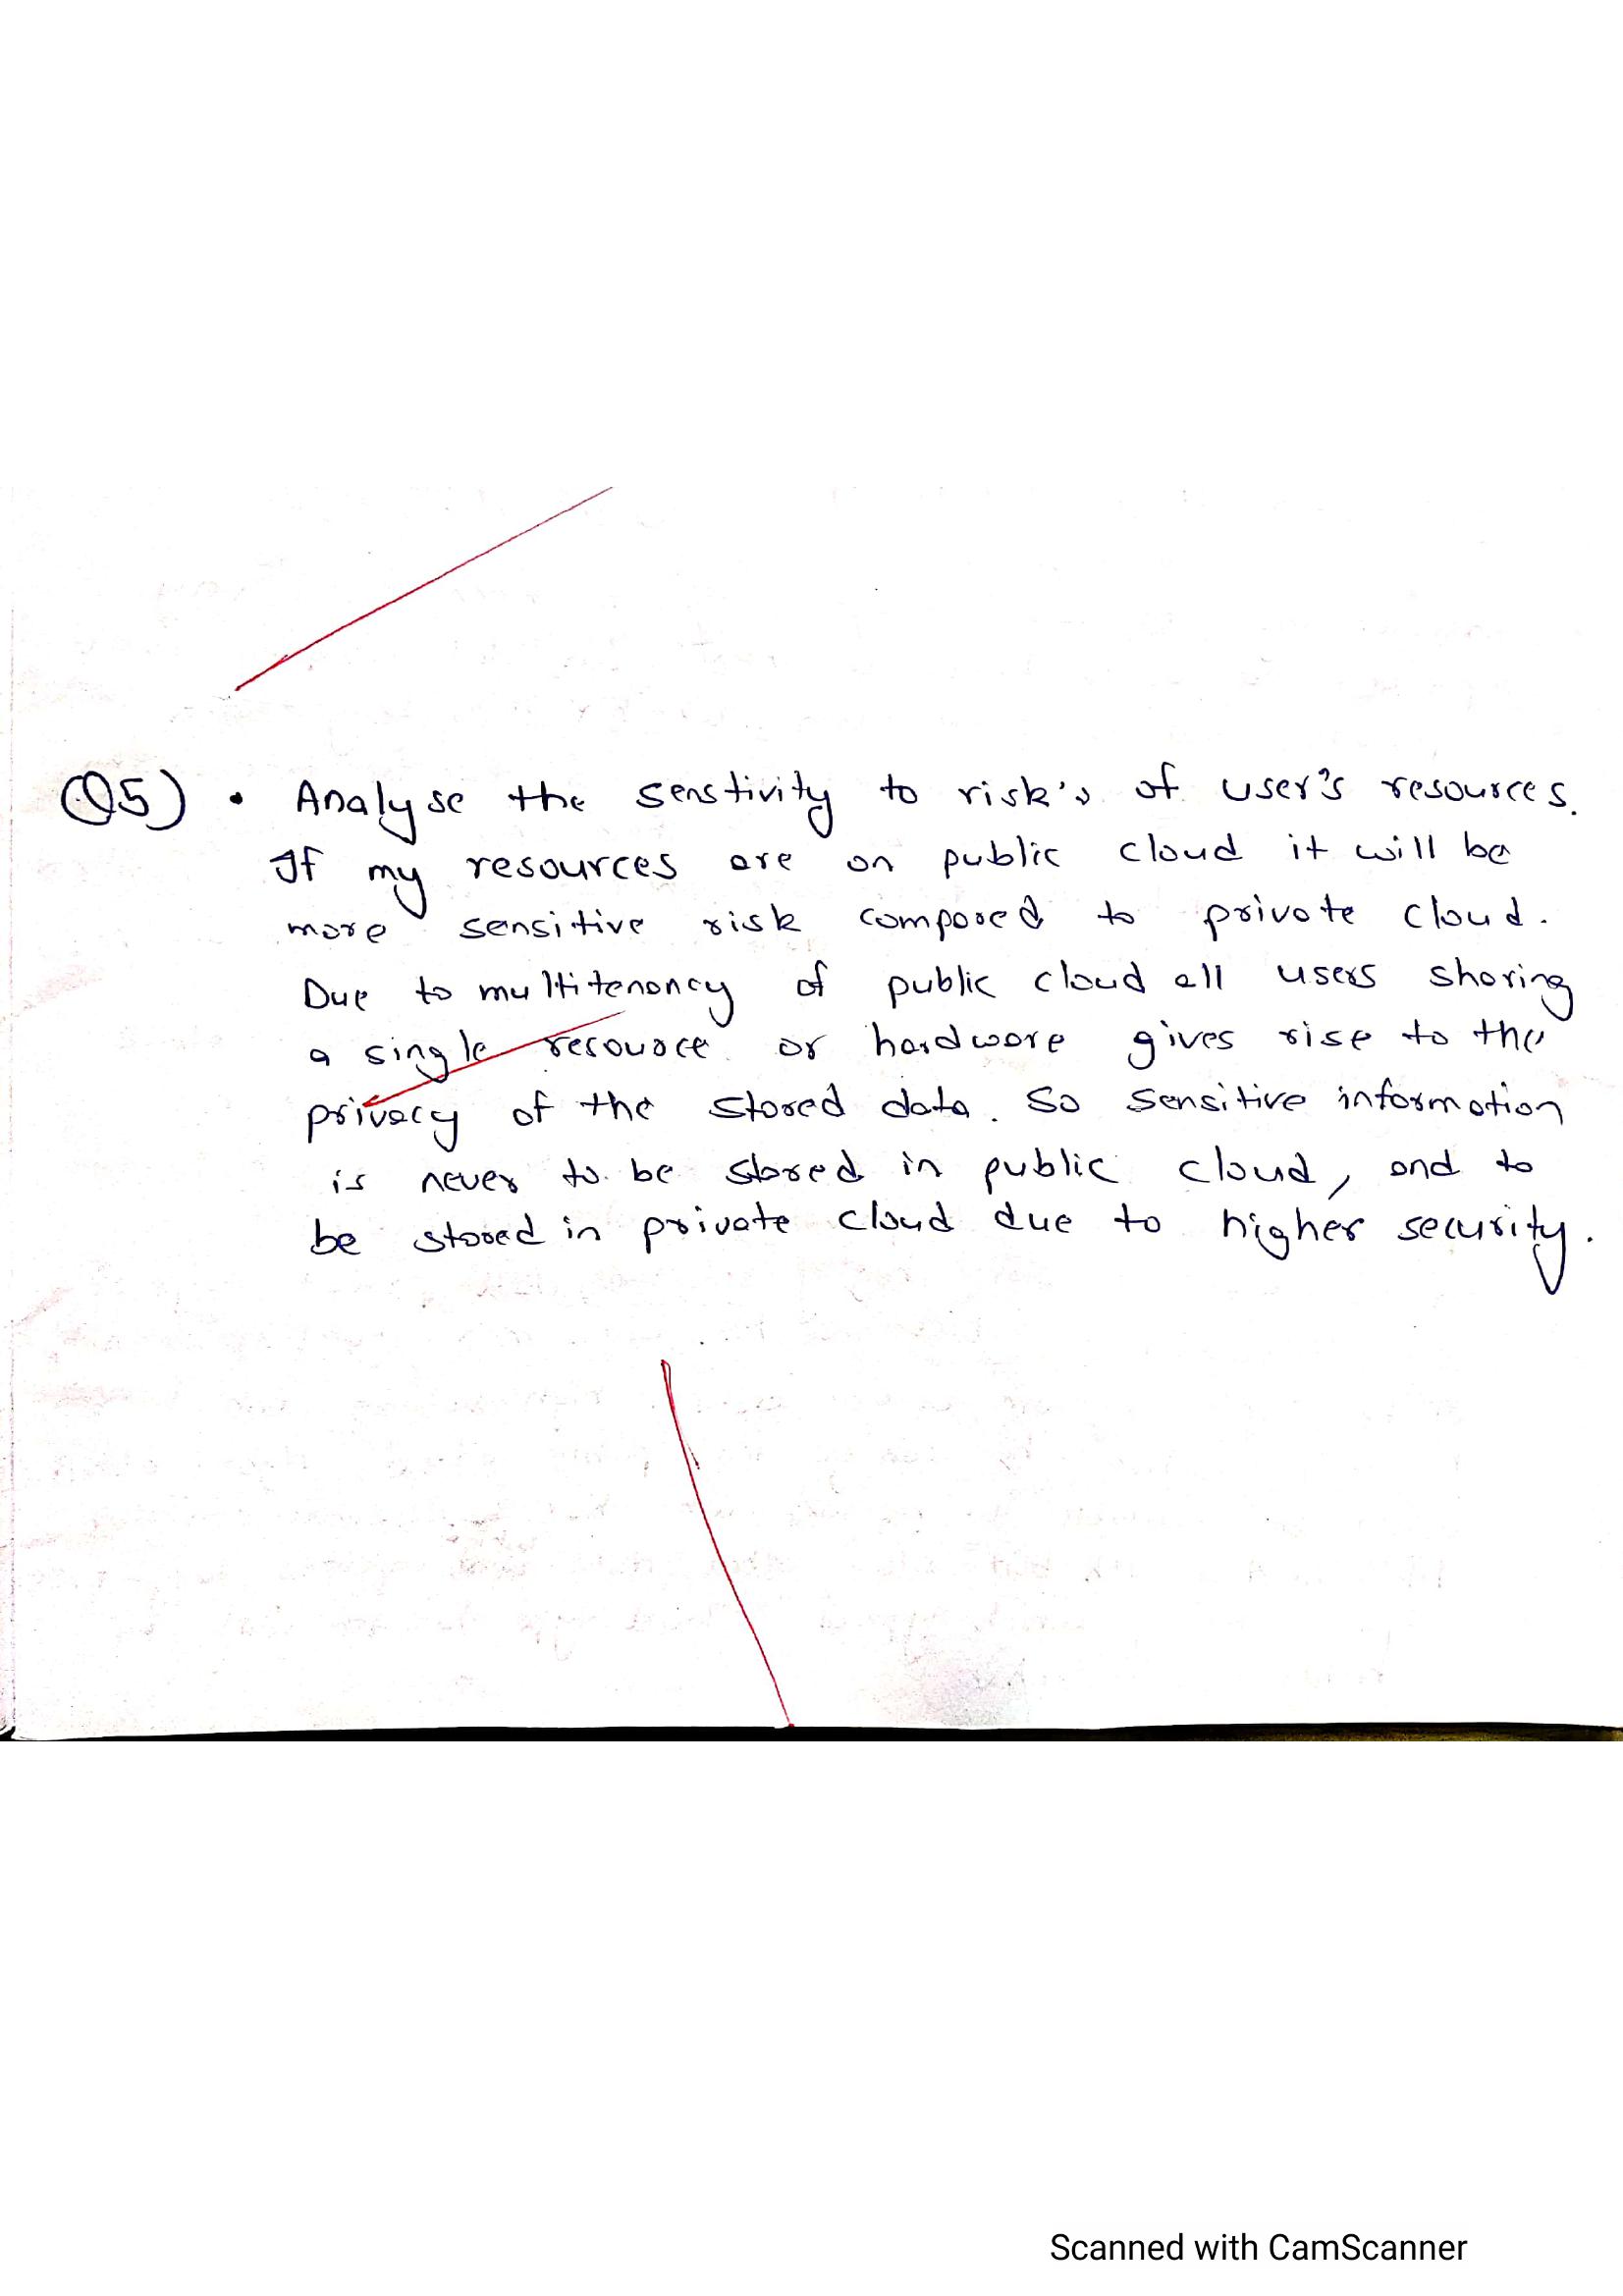 Q5) • Analyse the senstivity to risk's of user's resources.
If my resources are on public cloud it will be
more sensitive risk compared to private cloud.
Due to multitenancy of public cloud all users sharing
a single resource or hardware gives rise to the
privacy of the stored data. So sensitive information
is never to be stored in public cloud, and to
be stored in private cloud due to higher security.
Scanned with CamScanner